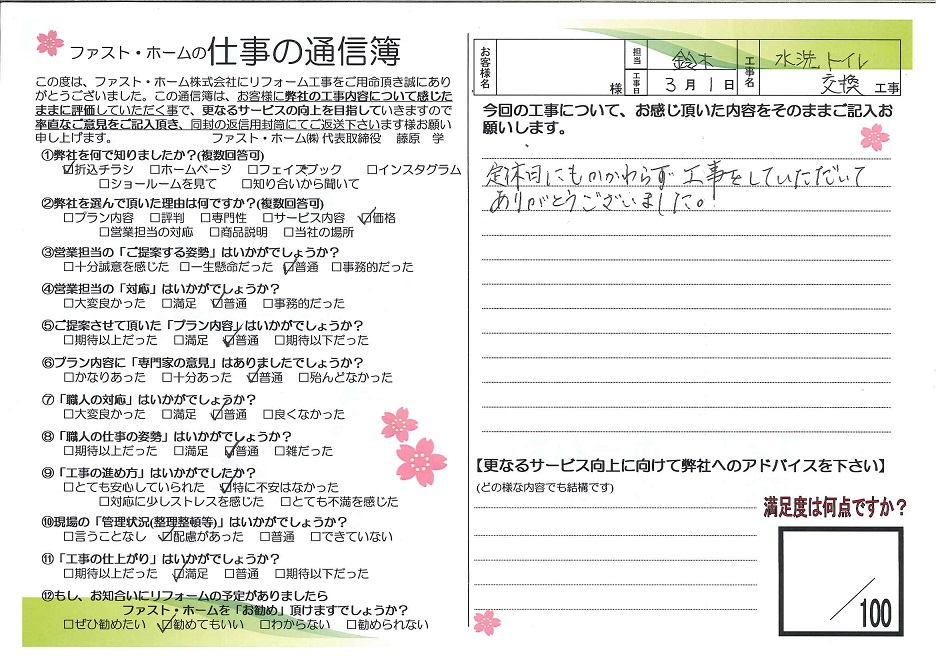 ファスト・ホームの仕事の通信簿
この度は、ファスト・ホーム株式会社にリフォーム工事をご用命頂き誠にあり
がとうございました。この通信簿は、お客様に弊社の工事内容について感じた
ままに評価していただく事で、更なるサービスの向上を目指していきますので
率直なご意見をご記入頂き、同封の返信用封筒にてご返送下さいます様お願い
申し上げます。 ファスト・ホーム㈱ 代表取締役 藤原 学
①弊社を何で知りましたか?(複数回答可)
☑折込チラシ □ホームページ □フェイスブック □インスタグラム
□ショールームを見て □知り合いから聞いて
②弊社を選んで頂いた理由は何ですか?(複数回答可)
□プラン内容 □評判 □専門性 □サービス内容 ☑価格
□営業担当の対応 □商品説明 □当社の場所
③営業担当の「ご提案する姿勢」はいかがでしょうか?
□十分誠意を感じた □一生懸命だった ☑普通 □事務的だった
④営業担当の「対応」はいかがでしょうか?
□大変良かった □満足 ☑普通 □事務的だった
⑤ご提案させて頂いた「プラン内容」はいかがでしょうか?
□期待以上だった □満足 ☑普通 □期待以下だった
⑥プラン内容に「専門家の意見」はありましたでしょうか?
□かなりあった □十分あった ☑普通 □殆んどなかった
⑦「職人の対応」はいかがでしょうか?
□大変良かった □満足 ☑普通 □良くなかった
⑧「職人の仕事の姿勢」はいかがでしょうか?
□期待以上だった □満足 ☑普通 □雑だった
⑨「工事の進め方」はいかがでしたか?
□とても安心していられた ☑特に不安はなかった
□対応に少しストレスを感じた □とても不満を感じた
⑩現場の「管理状況(整理整頓等)」はいかがでしょうか?
□言うことなし ☑配慮があった □普通 □できていない
⑪「工事の仕上がり」はいかがでしょうか?
□期待以上だった ☑満足 □普通 □期待以下だった
⑫もし、お知合いにリフォームの予定がありましたら
ファスト・ホームを「お勧め」頂けますでしょうか?
□ぜひ勧めたい ☑勧めてもいい □わからない □勧められない
お客様名 様 担当 鈴木 工事名 水洗トイレ
工事日 3月1日 交換 工事
今回の工事について、お感じ頂いた内容をそのままご記入お
願いします。
定休日にもかかわらず工事をしていただいて
ありがとうございました。
【更なるサービス向上に向けて弊社へのアドバイスを下さい】
(どの様な内容でも結構です)
満足度は何点ですか?
/100